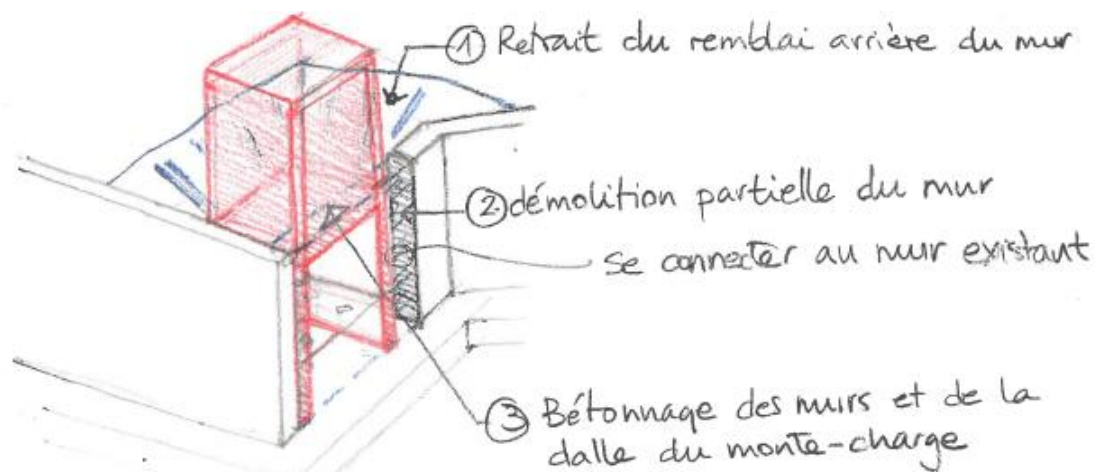 ① Retrait du remblai arrière du mur
② démolition partielle du mur
se connecter au mur existant
③ Bétonnage des murs et de la
dalle du monte-charge